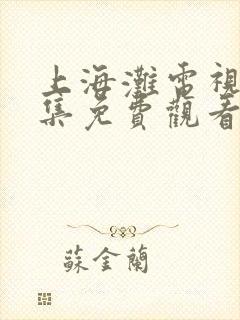 上海灘電視
集免費觀看
蘇金蘭